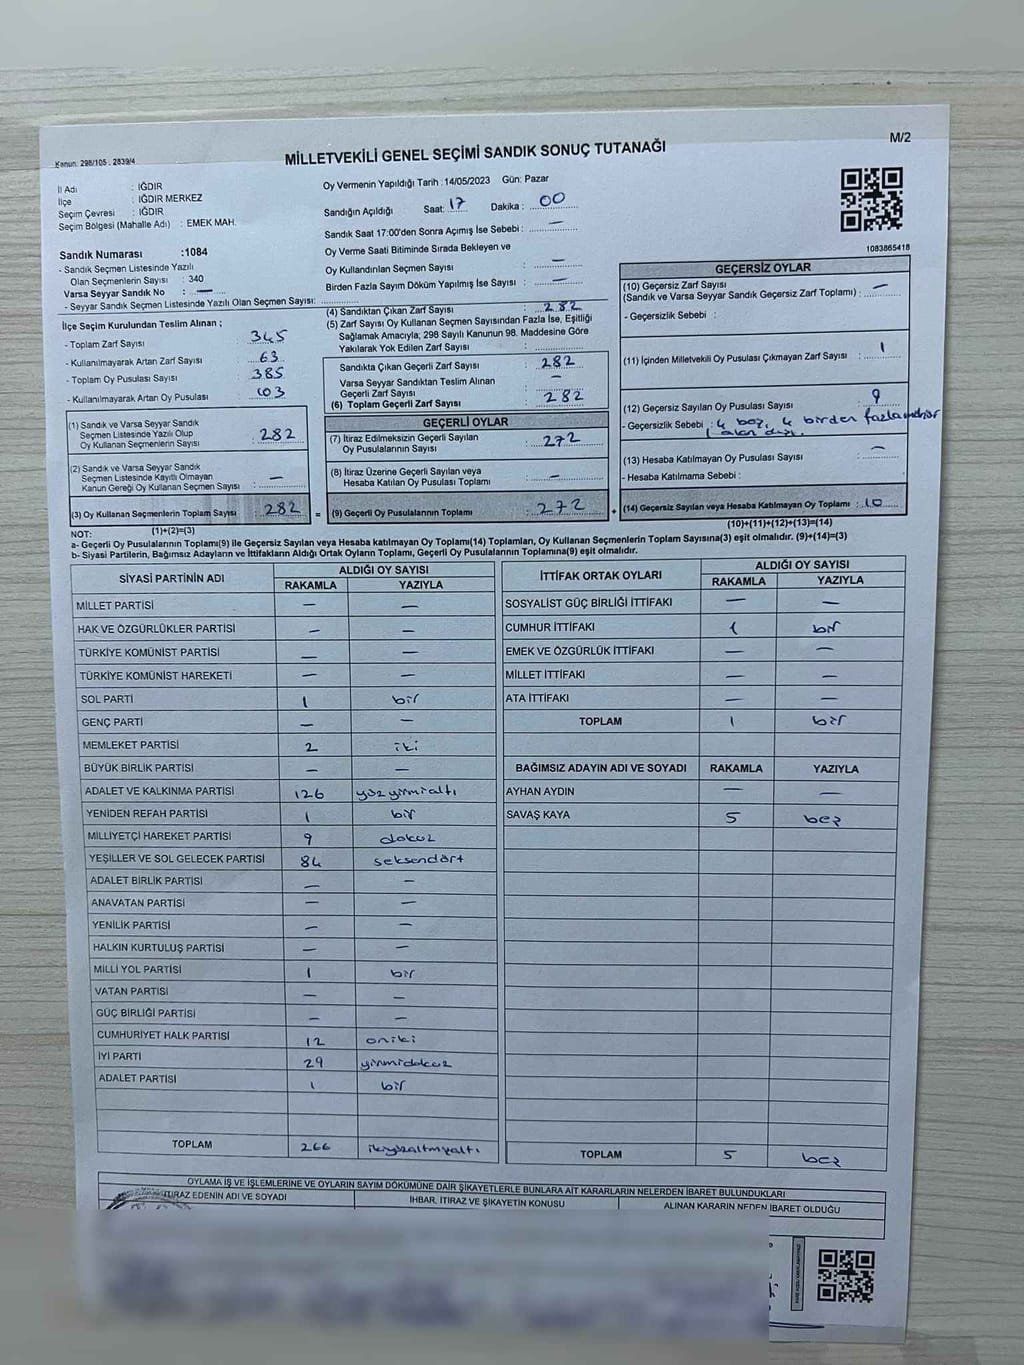 M/2
Kanun: 298/105 . 2839/4
MİLLETVEKİLİ GENEL SEÇİMİ SANDIK SONUÇ TUTANAĞI
İl Adı : IĞDIR
İlçe : IĞDIR MERKEZ
Seçim Çevresi : IĞDIR
Seçim Bölgesi (Mahalle Adı) : EMEK MAH.
Oy Vermenin Yapıldığı Tarih : 14/05/2023 Gün: Pazar
Sandığın Açıldığı Saat: 17 Dakika: 00
Sandık Saat 17:00'den Sonra Açımış İse Sebebi : —
Oy Verme Saati Bitiminde Sırada Bekleyen ve
Oy Kullandırılan Seçmen Sayısı : —
Birden Fazla Sayım Döküm Yapılmış İse Sayısı : —
1083865418
Sandık Numarası :1084
- Sandık Seçmen Listesinde Yazılı
Olan Seçmenlerin Sayısı : 340
Varsa Seyyar Sandık No : —
- Seyyar Sandık Seçmen Listesinde Yazılı Olan Seçmen Sayısı:
İlçe Seçim Kurulundan Teslim Alınan ;
- Toplam Zarf Sayısı : 345
- Kullanılmayarak Artan Zarf Sayısı : 63
- Toplam Oy Pusulası Sayısı : 385
- Kullanılmayarak Artan Oy Pusulası : 103
(1) Sandık ve Varsa Seyyar Sandık
Seçmen Listesinde Yazılı Olup
Oy Kullanan Seçmenlerin Sayısı : 282
(2) Sandık ve Varsa Seyyar Sandık
Seçmen Listesinde Kayıtlı Olmayan
Kanun Gereği Oy Kullanan Seçmen Sayısı : —
(3) Oy Kullanan Seçmenlerin Toplam Sayısı : 282
(1)+(2)=(3)
(4) Sandıktan Çıkan Zarf Sayısı : 282
(5) Zarf Sayısı Oy Kullanan Seçmen Sayısından Fazla İse, Eşitliği
Sağlamak Amacıyla, 298 Sayılı Kanunun 98. Maddesine Göre
Yakılarak Yok Edilen Zarf Sayısı :
Sandıkta Çıkan Geçerli Zarf Sayısı : 282
Varsa Seyyar Sandıktan Teslim Alınan
Geçerli Zarf Sayısı : —
(6) Toplam Geçerli Zarf Sayısı : 282
GEÇERLİ OYLAR
(7) İtiraz Edilmeksizin Geçerli Sayılan
Oy Pusulalarının Sayısı : 272
(8) İtiraz Üzerine Geçerli Sayılan veya
Hesaba Katılan Oy Pusulası Toplamı : —
= (9) Geçerli Oy Pusulalarının Toplamı : 272 +
GEÇERSİZ OYLAR
(10) Geçersiz Zarf Sayısı
(Sandık ve Varsa Seyyar Sandık Geçersiz Zarf Toplamı) : —
- Geçersizlik Sebebi :
(11) İçinden Milletvekili Oy Pusulası Çıkmayan Zarf Sayısı : 1
(12) Geçersiz Sayılan Oy Pusulası Sayısı : 9
- Geçersizlik Sebebi : 4 boş, 4 birden fazla mühür
1 alan dışı.
(13) Hesaba Katılmayan Oy Pusulası Sayısı : —
- Hesaba Katılmama Sebebi :
(14) Geçersiz Sayılan veya Hesaba Katılmayan Oy Toplamı : 10
(10)+(11)+(12)+(13)=(14)
NOT:
a- Geçerli Oy Pusulalarının Toplamı(9) ile Geçersiz Sayılan veya Hesaba katılmayan Oy Toplamı(14) Toplamları, Oy Kullanan Seçmenlerin Toplam Sayısına(3) eşit olmalıdır. (9)+(14)=(3)
b- Siyasi Partilerin, Bağımsız Adayların ve İttifakların Aldığı Ortak Oyların Toplamı, Geçerli Oy Pusulalarının Toplamına(9) eşit olmalıdır.
SİYASİ PARTİNİN ADI ALDIĞI OY SAYISI
RAKAMLA YAZIYLA
MİLLET PARTİSİ — —
HAK VE ÖZGÜRLÜKLER PARTİSİ — —
TÜRKİYE KOMÜNİST PARTİSİ — —
TÜRKİYE KOMÜNİST HAREKETİ — —
SOL PARTİ 1 bir
GENÇ PARTİ — —
MEMLEKET PARTİSİ 2 iki
BÜYÜK BİRLİK PARTİSİ — —
ADALET VE KALKINMA PARTİSİ 126 yüzyirmialtı
YENİDEN REFAH PARTİSİ 1 bir
MİLLİYETÇİ HAREKET PARTİSİ 9 dokuz
YEŞİLLER VE SOL GELECEK PARTİSİ 84 seksendört
ADALET BİRLİK PARTİSİ — —
ANAVATAN PARTİSİ — —
YENİLİK PARTİSİ — —
HALKIN KURTULUŞ PARTİSİ — —
MİLLİ YOL PARTİSİ 1 bir
VATAN PARTİSİ — —
GÜÇ BİRLİĞİ PARTİSİ — —
CUMHURİYET HALK PARTİSİ 12 oniki
İYİ PARTİ 29 yirmidokuz
ADALET PARTİSİ 1 bir
TOPLAM 266 ikiyüzaltmışaltı
İTTİFAK ORTAK OYLARI ALDIĞI OY SAYISI
RAKAMLA YAZIYLA
SOSYALİST GÜÇ BİRLİĞİ İTTİFAKI — —
CUMHUR İTTİFAKI 1 bir
EMEK VE ÖZGÜRLÜK İTTİFAKI — —
MİLLET İTTİFAKI — —
ATA İTTİFAKI — —
TOPLAM 1 bir
BAĞIMSIZ ADAYIN ADI VE SOYADI RAKAMLA YAZIYLA
AYHAN AYDIN — —
SAVAŞ KAYA 5 beş
TOPLAM 5 beş
OYLAMA İŞ VE İŞLEMLERİNE VE OYLARIN SAYIM DÖKÜMÜNE DAİR ŞİKAYETLERLE BUNLARA AİT KARARLARIN NELERDEN İBARET BULUNDUKLARI
İTİRAZ EDENİN ADI VE SOYADI İHBAR, İTİRAZ VE ŞİKAYETİN KONUSU ALINAN KARARIN NEDEN İBARET OLDUĞU